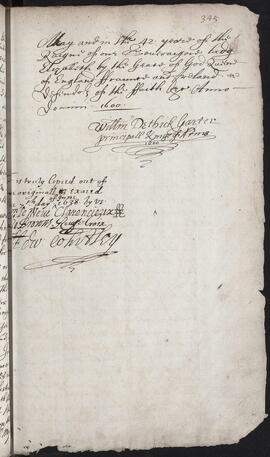 345
May and in the 42 yeare of the
Reigne of our Soveraigne lady
Elizabeth by the Grace of God Queene
of England ffraunce and Ireland
Defender of the ffaith &c Anno
Domini 1600.
Willm Dethick Garter
principall king of Armes
1600
is truly Copied out of
originall
day of June 1638 by us
Le Neve Clarenceieux
Thomas Rouge Croix